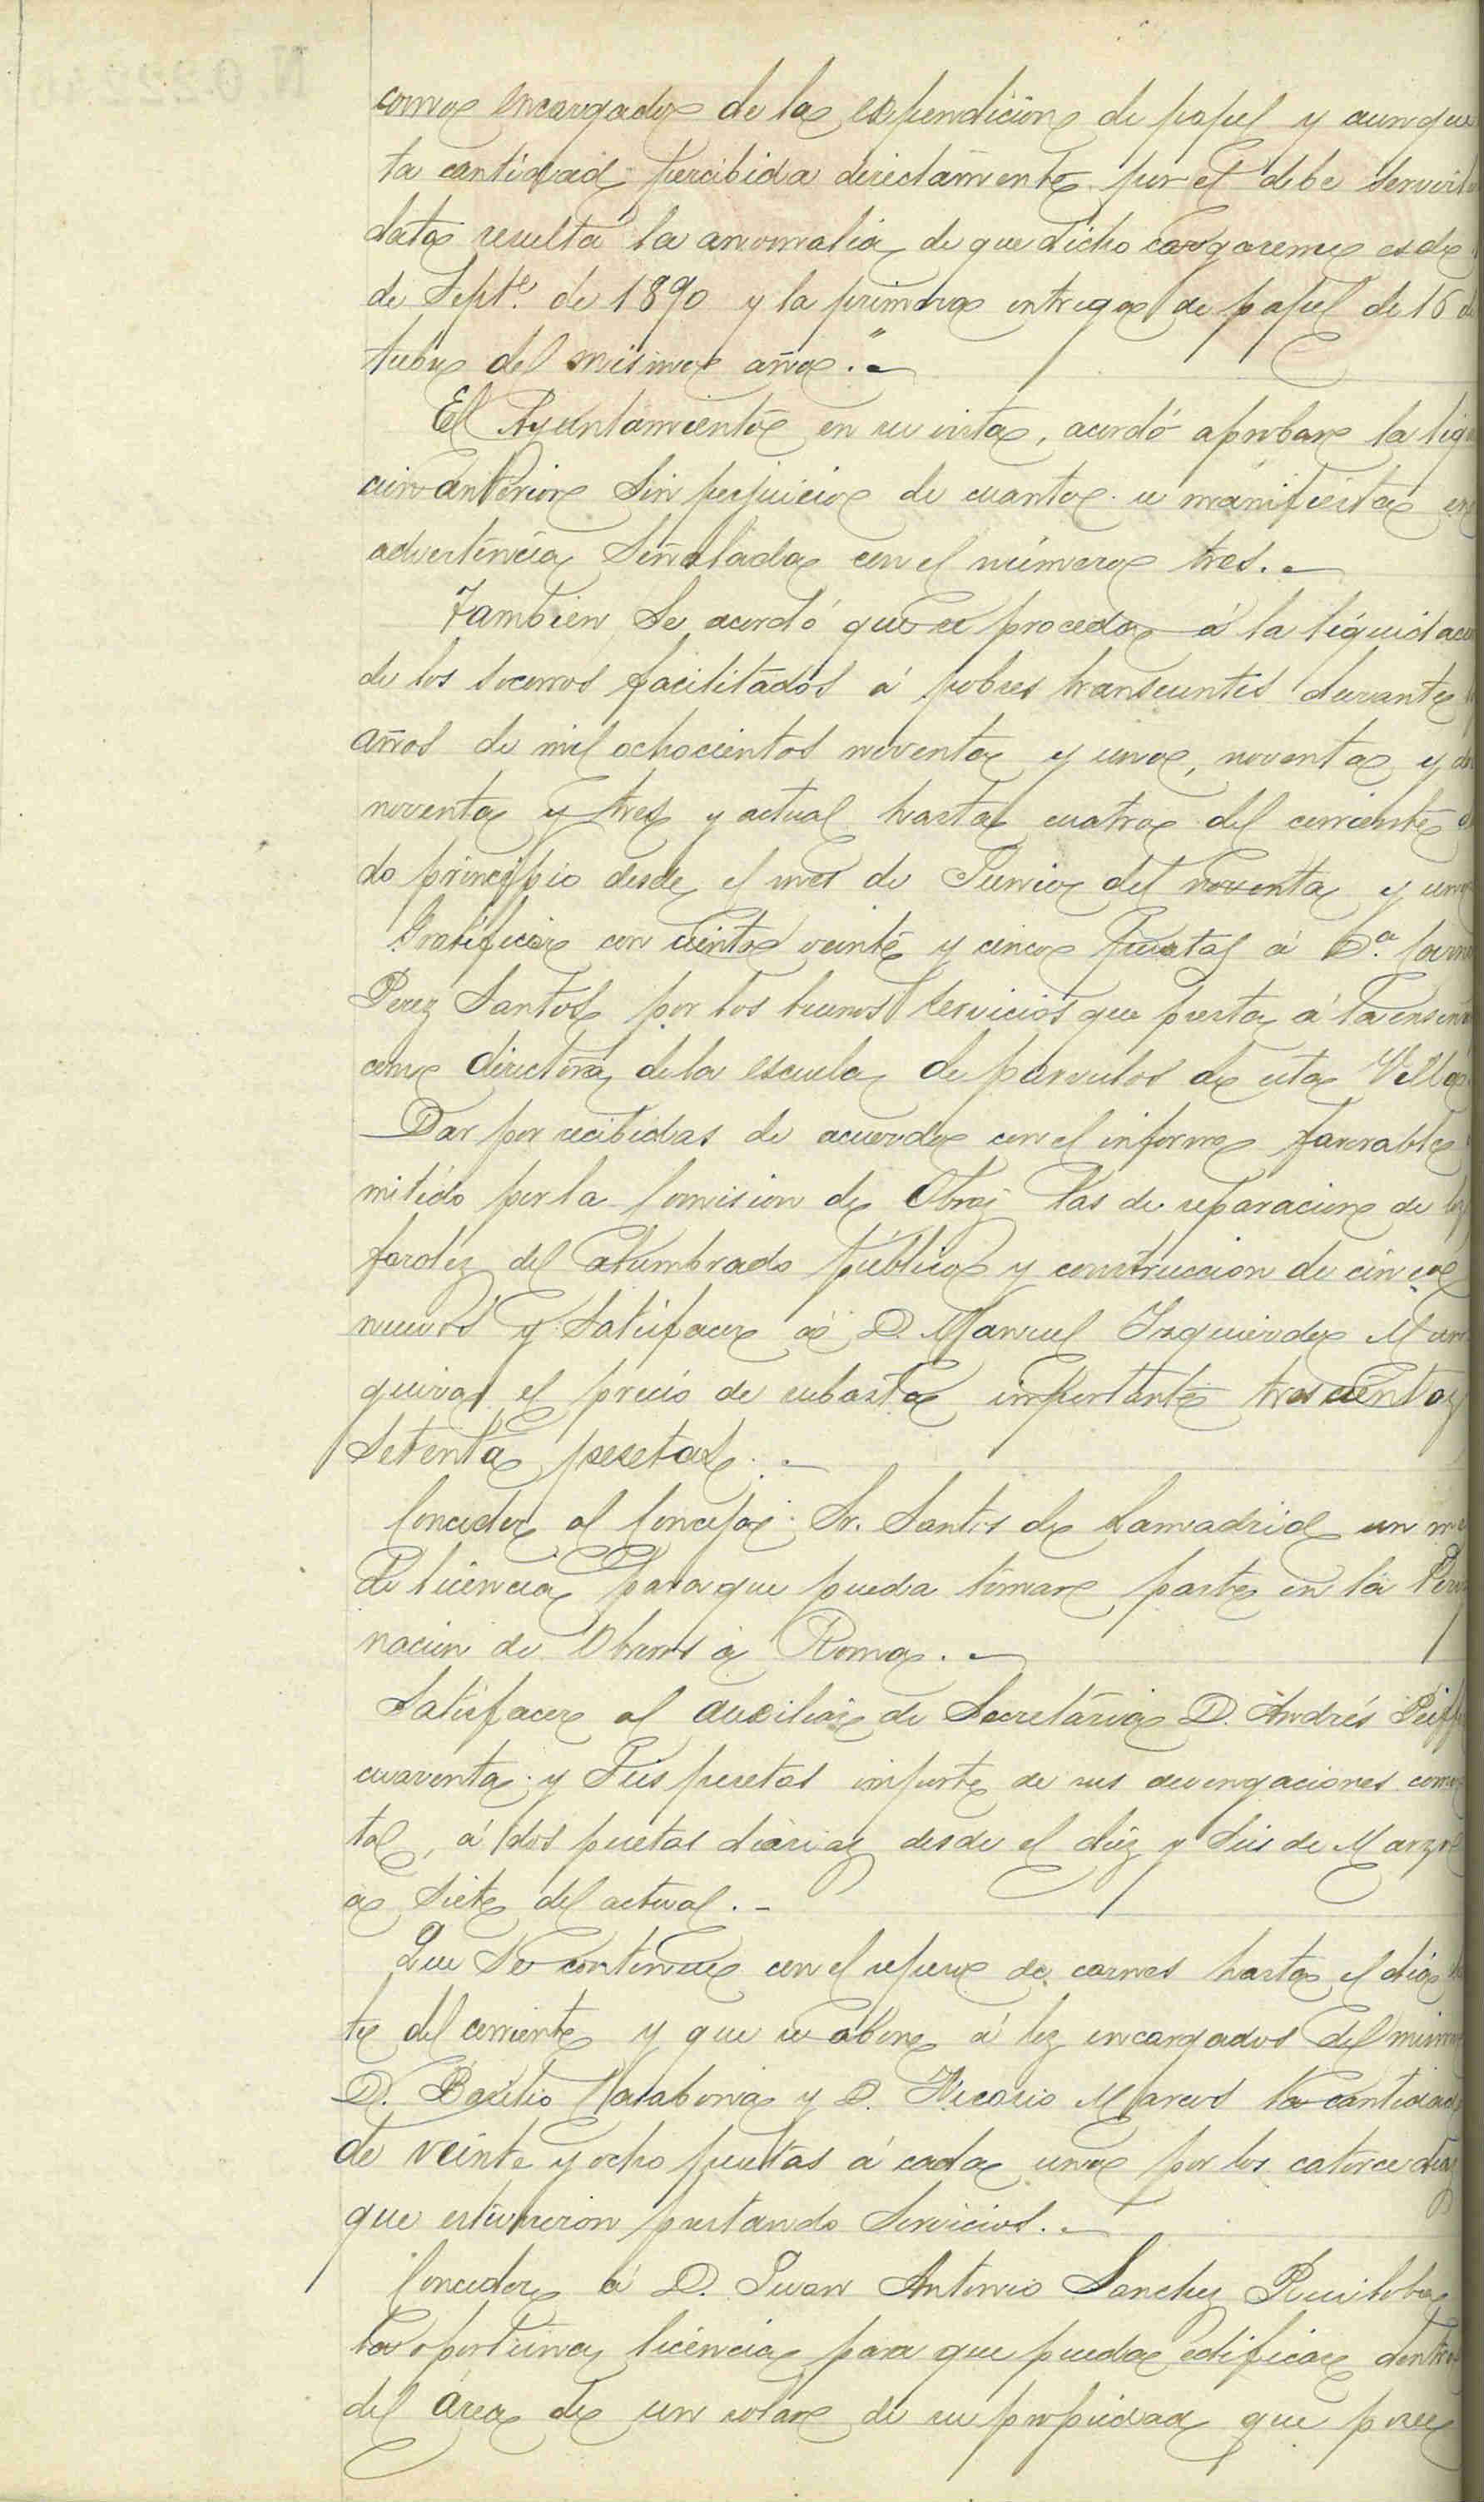 como encargado de la espendición de papel y aunque
ta cantidad percibida directamente por el debe servir
data resulta la anomalia de que dicho cargareme es de
de Septe. de 1890 y la primera entrega de papel de 16 de
tubre del mismo año."
El Ayuntamiento en su vista, acordó aprobar la liqui
cion anterior sin perjuicio de cuanto se manifiesta en
advertencia señalada con el número tres.
Tambien se acordó que se proceda á la liquidacion
de los socorros facilitados á pobres transeuntes durante
años de mil ochocientos noventa y uno, noventa y dos
noventa y tres y actual hasta cuatro del corriente
do principio desde el mes de Junio del noventa y uno
Gratificar con ciento veinte y cinco pesetas á Da.
Perez Santos por los buenos servicios que presta á la enseñ
como directora de la escuela de parvulos de esta Villa
Dar por recibidas de acuerdo con el informe favorable
mitido por la Comision de Obras las de reparacion de los
faroles del alumbrado público y construccion de cinco
nuevos y satisfacer á D. Manuel Izquierdo
quira el precio de subasta importante trescientas
setenta pesetas.
Conceder al Concejal Sr. Santos de Lamadrid un mes
de licencia para que pueda tomar parte en la Pere
nacion de Obreros á Roma.
Satisfacer al auxiliar de Secretaria D. Andrés
cuarenta y seis pesetas importe de sus devengaciones como
tal, á dos pesetas diarias desde el diez y seis de Marzo
a siete del actual.
Que se continue con el repeso de carnes hasta el dia
te del corriente y que se abone á los encargados del mismo
D. Basilio Matabuena y D. Nicasio Marcos la cantidad
de veinte y ocho pesetas á cada uno por los catorce dias
que estuvieron prestando servicios.
Conceder á D. Juan Antonio Sanchez Ruiloba
la oportuna licencia para que pueda edificar dentro
del área de un solar de su propiedad que posee